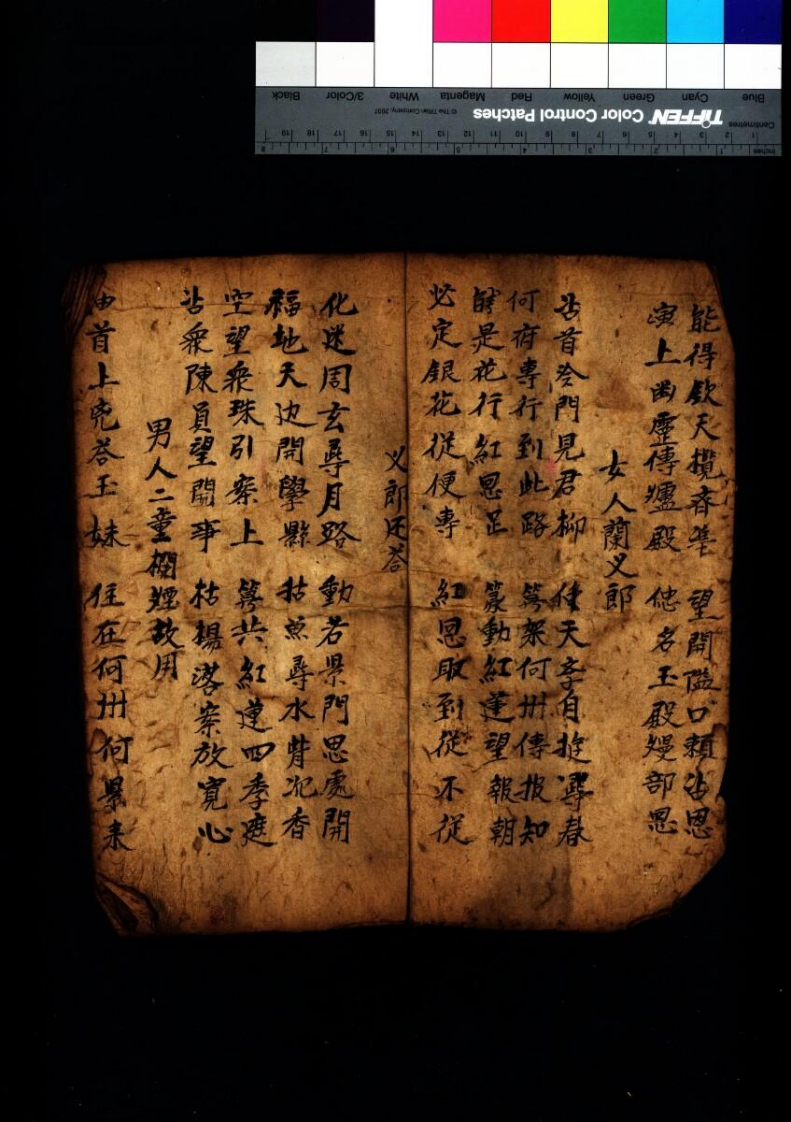 能得欽天攬春 望開隘口賴沾恩
演上幽靈傳爐殿 他名玉殿嫚部恩
女人蘭义郎
沾首冷門見君柳 使天李自挺尋春
何府專行到此路 筭架何卅傳报知
是花行紅恩足 篆動紅蓮望報朝
必定銀花從便專 紅恩取到從不從
义郎还荅
化迷周玄尋月路 動若景門思處開
福地天边開學縣 枯照尋水背犯香
空望衆珠引案上 筭共紅蓮四季庭
沾衆陳員望開事 枯楊落案放寬心
男人二童欄煙故用
由首上兜荅玉妹 住在何卅何景来
Blue Cyan Green Yellow Red Magenta White 3/Color Black
TIFFEN Color Control Patches
© The Tiffen Company, 2007
Centimetres 1 2 3 4 5 6 7 8 9 10 11 12 13 14 15 16 17 18 19
Inches 1 2 3 4 5 6 7 8